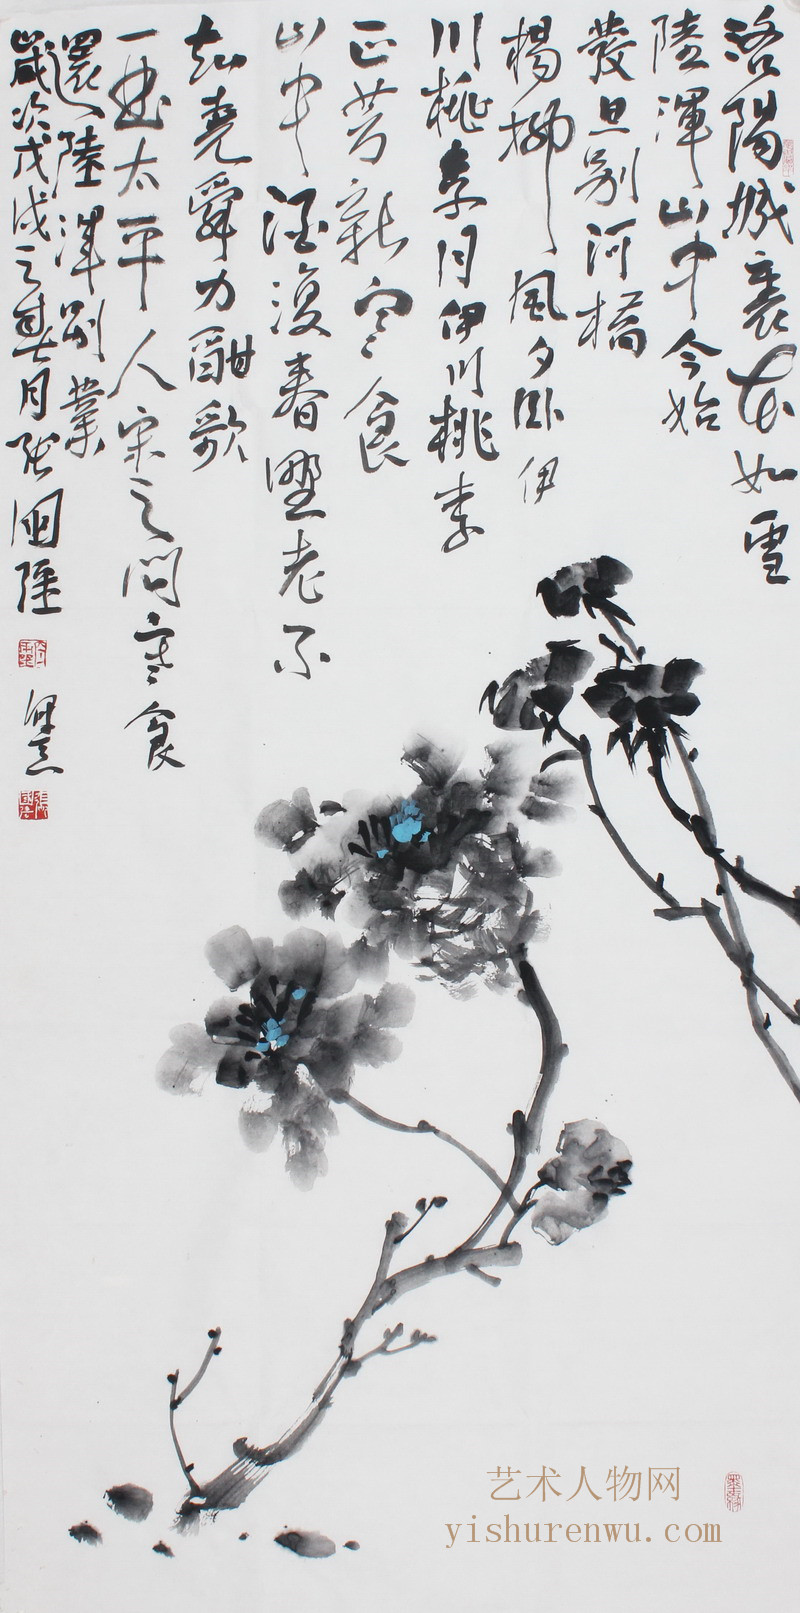 洛陽城裏花如雪
陸渾山中今始
發旦别河橋
楊柳風夕卧伊
川桃李月伊川桃李
正芳新寒食
山中酒復春野老不
知堯舜力酣歌
一曲太平人宋之問寒食
還陸渾別業
歲次戊戌之春月張国
艺术人物网
yishurenwu.com